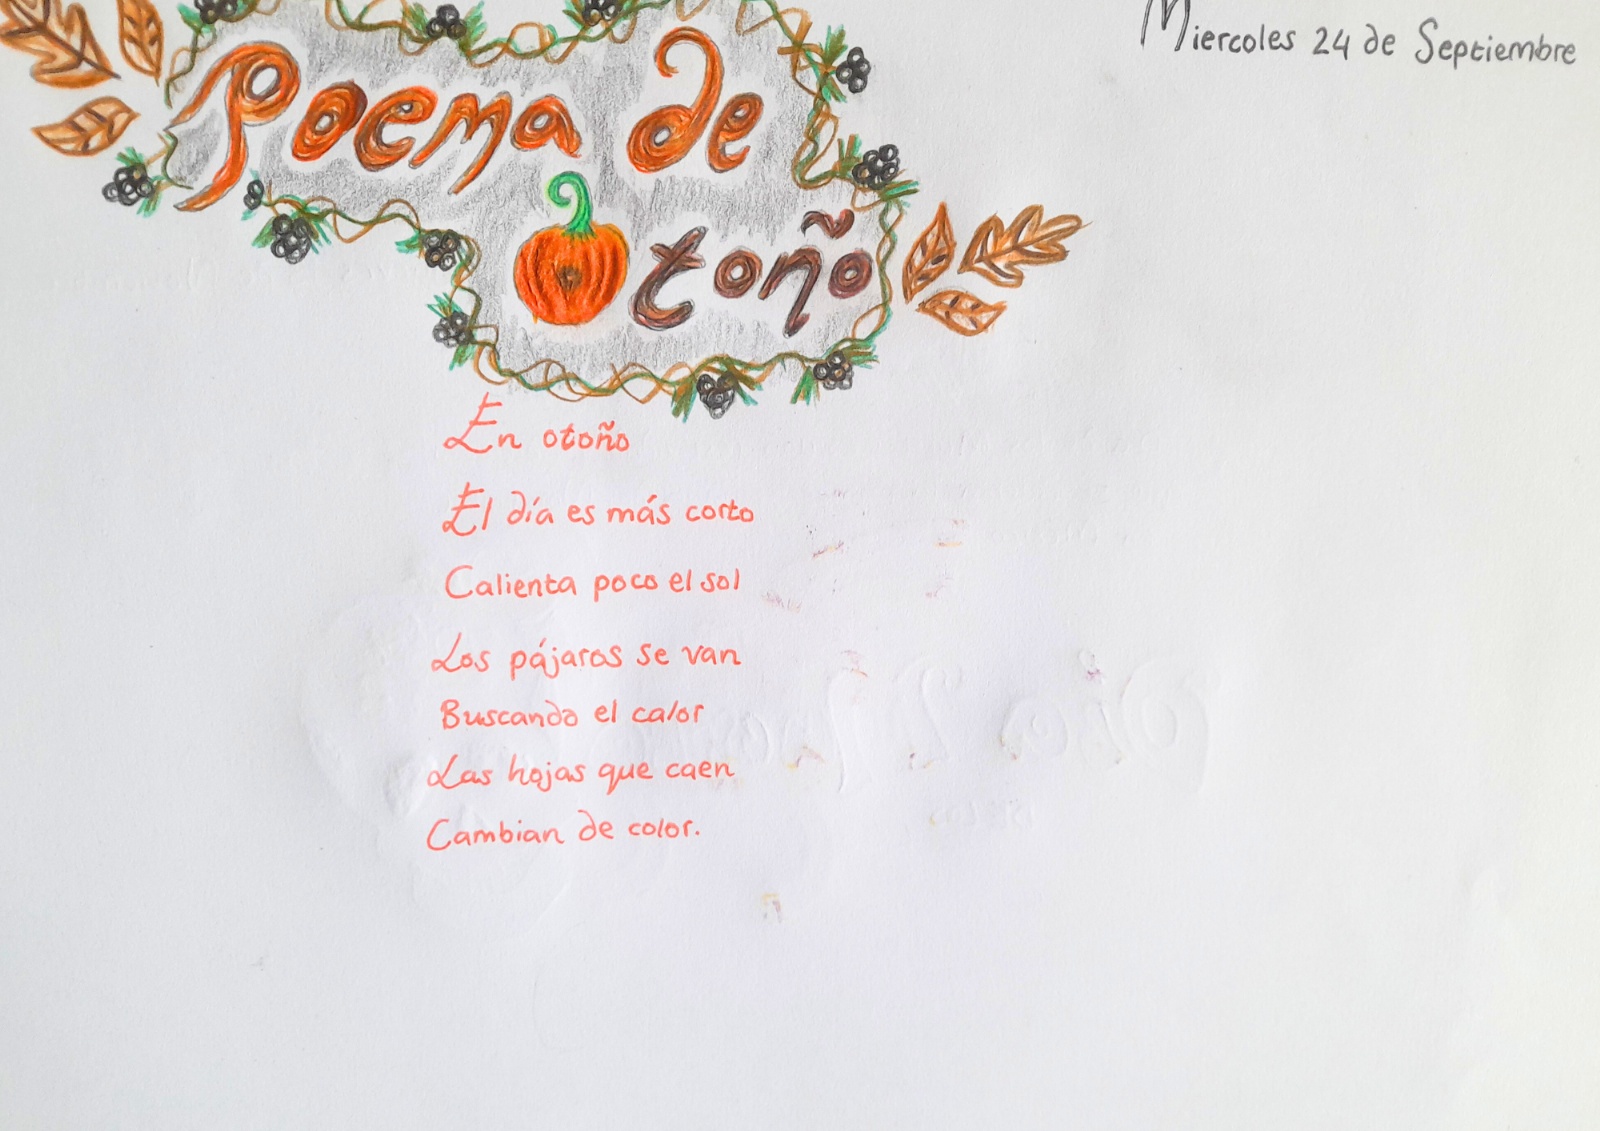 Miercoles 24 de Septiembre
Poema de
otoño
En otoño
El día es más corto
Calienta poco el sol
Los pájaros se van
Buscando el calor
Las hojas que caen
Cambian de color.